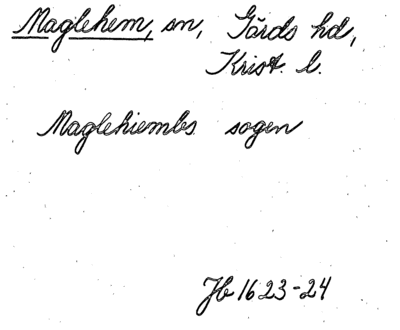 Maglehem, sn, Gärds hd,
Krist. l.
Maglehiembs sogen
Jb 1623-24